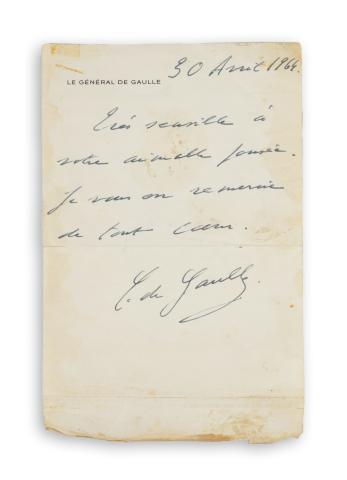 30 Avril 1964.
LE GÉNÉRAL DE GAULLE
Très sensible à
votre aimable pensée.
Je vous en remercie
de tout cœur.
C. de Gaulle.